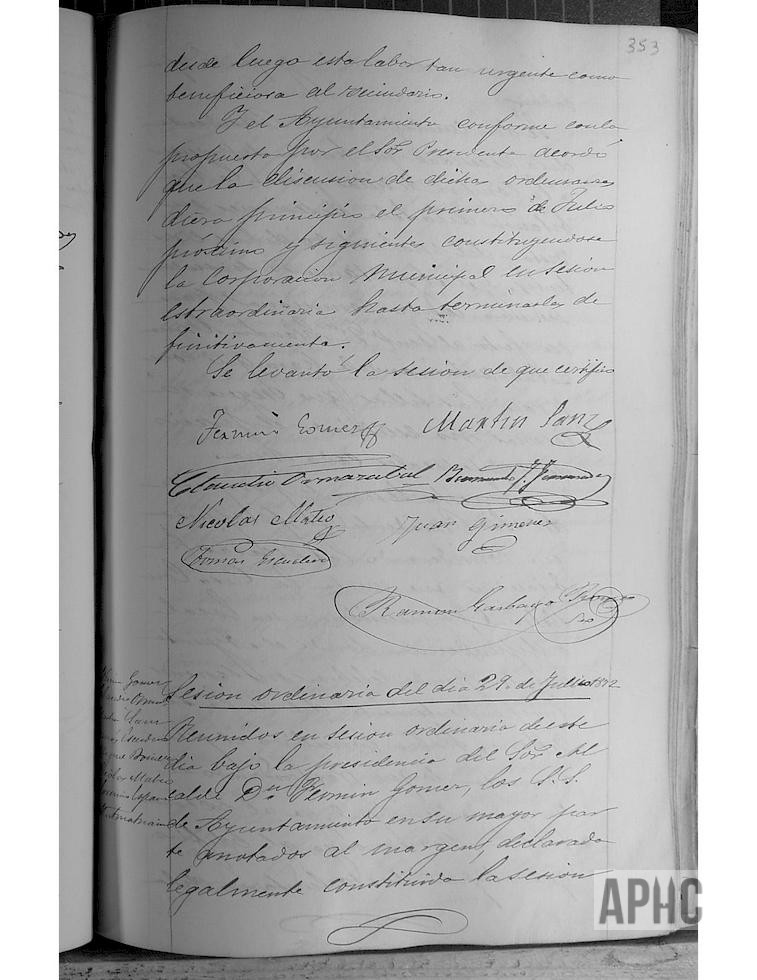 353
desde luego esta labor tan urgente como
beneficiosa al vecindario.
Y el Ayuntamiento conforme con lo
propuesto por el Sor Presidente acordó
que la discusion de dichas ordenanzas
diera principio el primero de Julio
próximo y siguientes constituyendose
la Corporacion Municipal en sesion
estraordinaria hasta terminarlas de
finitivamente.
Se levantó la sesion de que certifico
Fermin Gomez Martin Sanz
Claudio Ormazabal
Nicolas Mateo Juan Gimenez
Tomas Escudero
Ramon Garbayo
Sesion ordinaria del dia 29 de Julio 1892
Fermin Gomez
Claudio
Sanz
Escudero
Nicolas Mateo
Reunidos en sesion ordinaria de este
dia bajo la presidencia del Sor Al
calde Dn Fermin Gomez, los S.S.
de Ayuntamiento en su mayor par
te anotados al margen, declarada
legalmente constituida la sesion
APHC